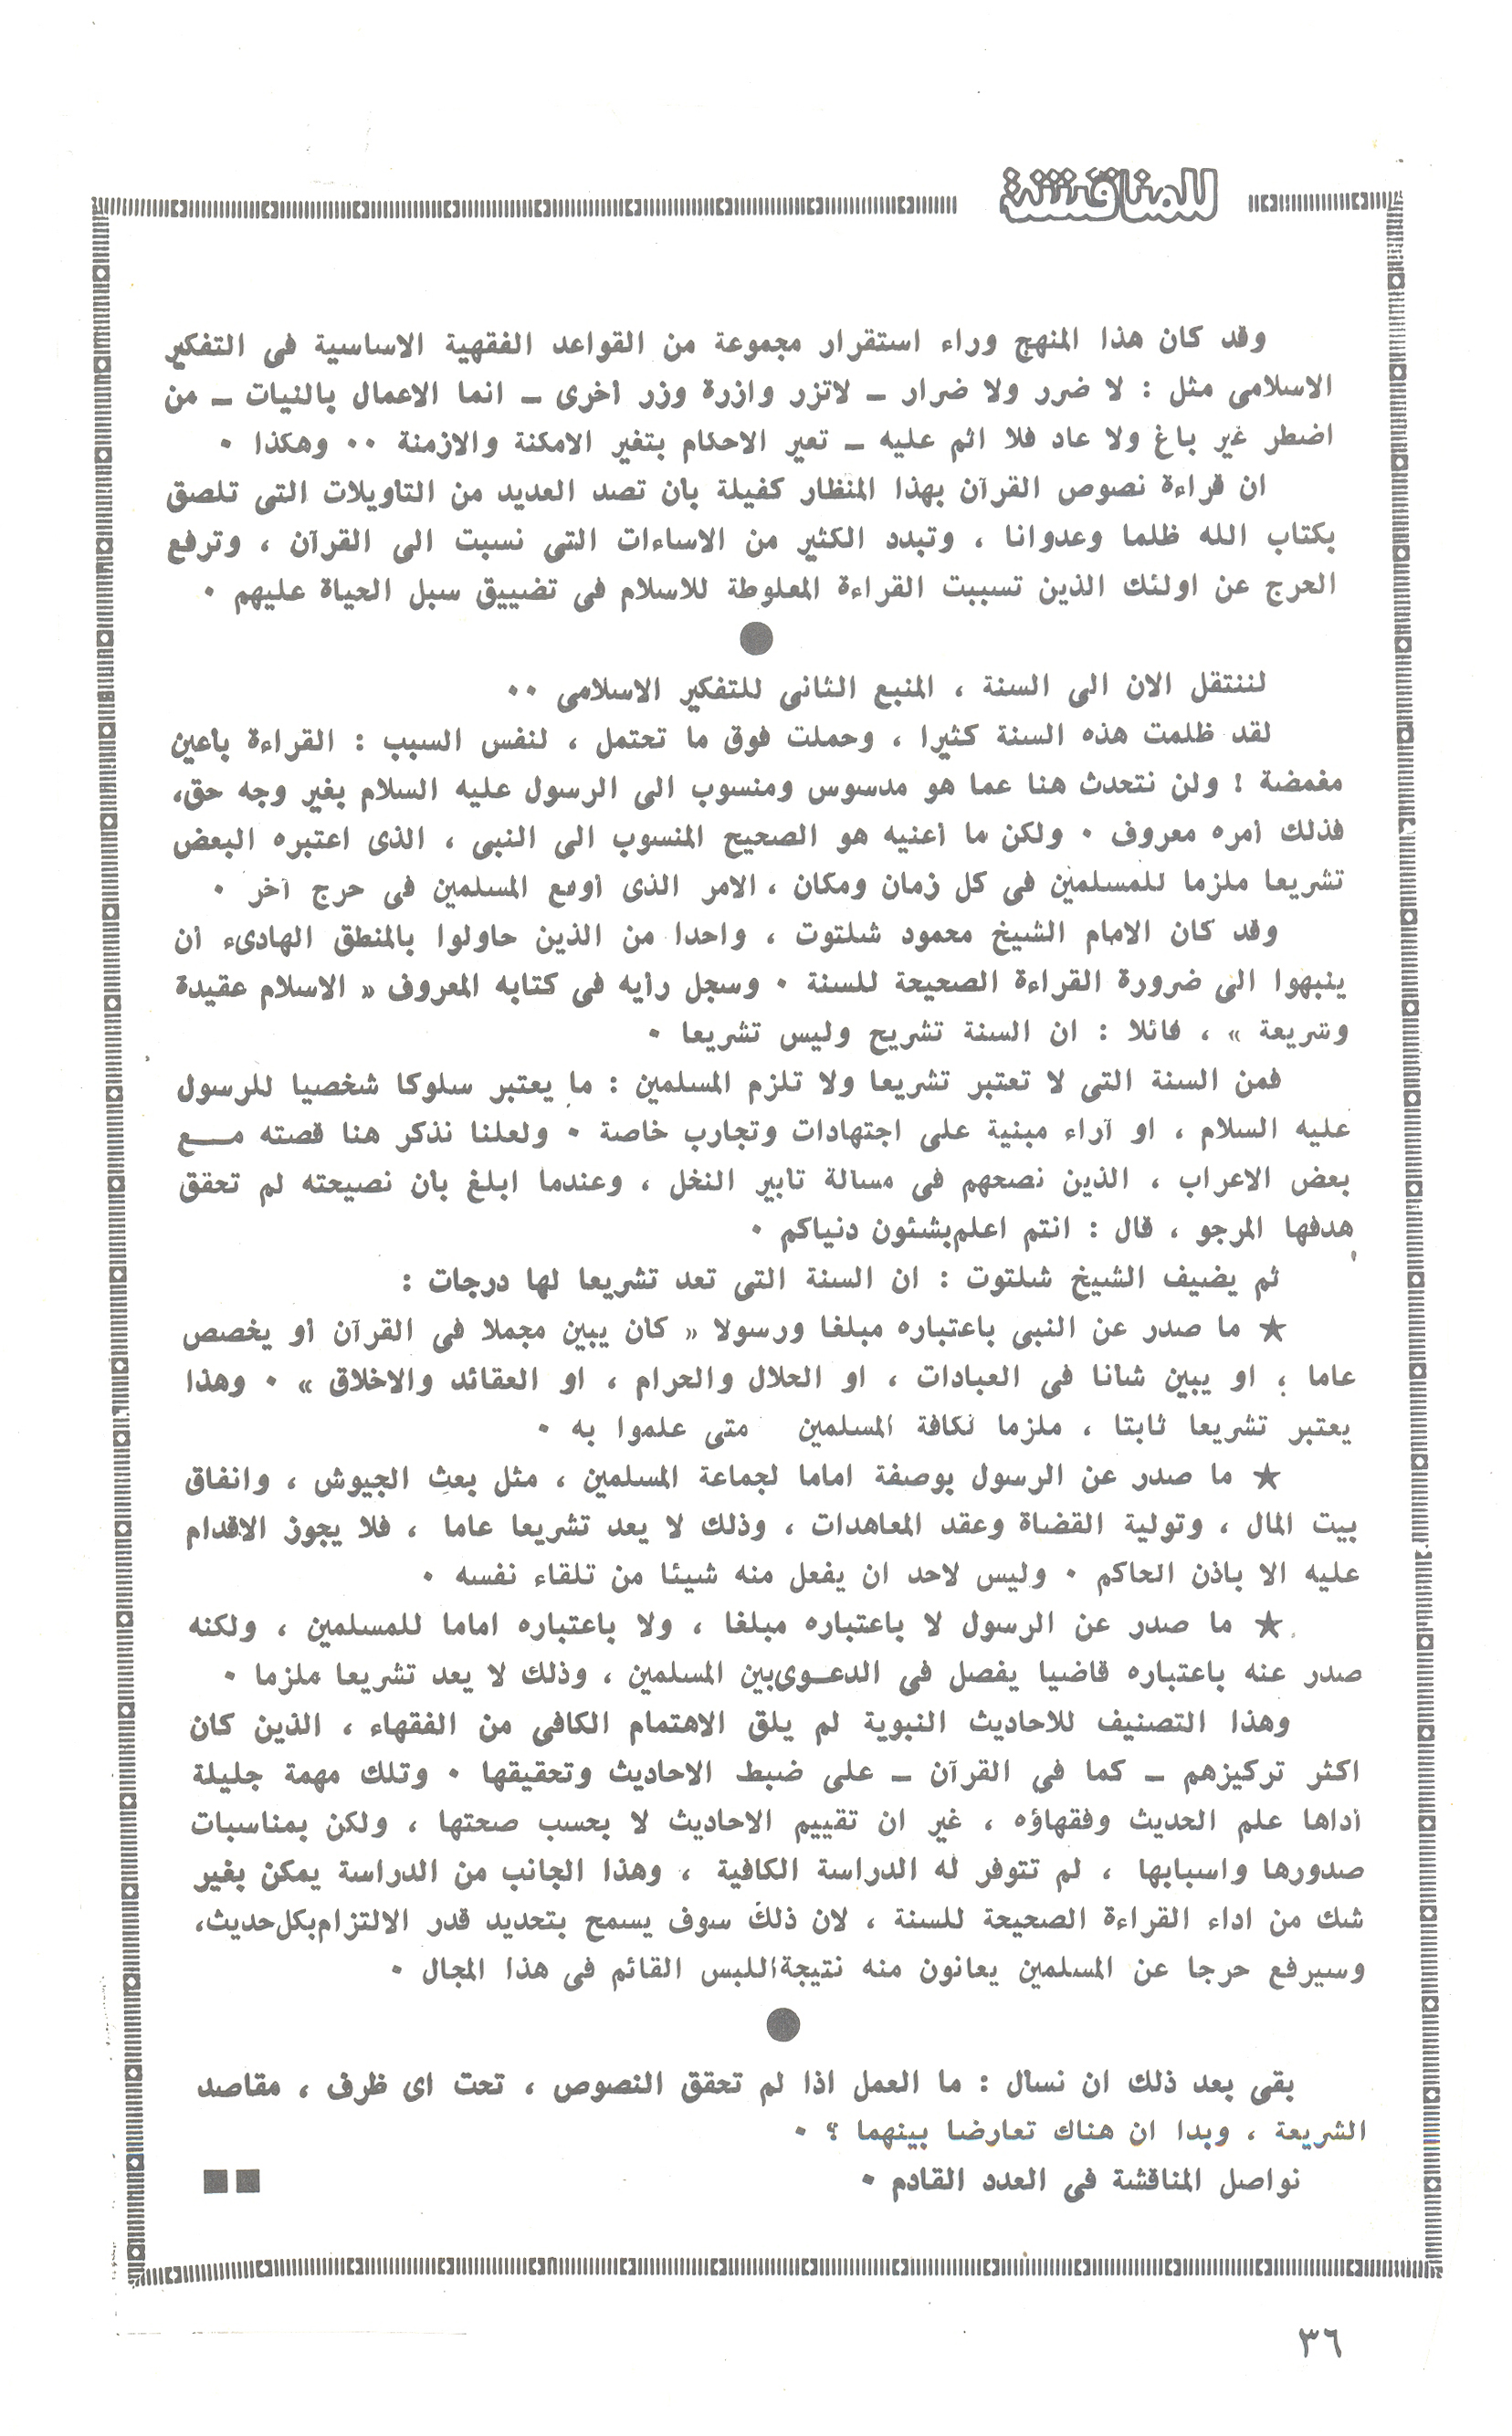 للمناقشة
وقد كان هذا المنهج وراء استقرار مجموعة من القواعد الفقهية الاساسية فى التفكير
الاسلامى مثل : لا ضرر ولا ضرار ــ لاتزر وازرة وزر أخرى ــ انما الاعمال بالنيات ــ من
اضطر غير باغ ولا عاد فلا اثم عليه ــ تعير الاحكام بتغير الامكنة والازمنة ٠٠ وهكذا ٠
ان قراءة نصوص القرآن بهذا المنظار كفيلة بان تصد العديد من التاويلات التى تلصق
بكتاب الله ظلما وعدوانا ، وتبدد الكثير من الاساءات التى نسبت الى القرآن ، وترفع
الحرج عن اولئك الذين تسببت القراءة المعلوطة للاسلام فى تضييق سبل الحياة عليهم ٠
لننتقل الان الى السنة ، المنبع الثانى للتفكير الاسلامى ٠٠
لقد ظلمت هذه السنة كثيرا ، وحملت فوق ما تحتمل ، لنفس السبب : القراءة بأعين
مغمضة ! ولن نتحدث هنا عما هو مدسوس ومنسوب الى الرسول عليه السلام بغير وجه حق،
فذلك أمره معروف ٠ ولكن ما أعنيه هو الصحيح المنسوب الى النبى ، الذى اعتبره البعض
تشريعا ملزما للمسلمين فى كل زمان ومكان ، الامر الذى أوقع المسلمين فى حرج آخر ٠
وقد كان الامام الشيخ محمود شلتوت ، واحدا من الذين حاولوا بالمنطق الهادىء أن
ينبهوا الى ضرورة القراءة الصحيحة للسنة ٠ وسجل رأيه فى كتابه المعروف « الاسلام عقيدة
وشريعة » ، قائلا : ان السنة تشريح وليس تشريعا ٠
فمن السنة التى لا تعتبر تشريعا ولا تلزم المسلمين : ما يعتبر سلوكا شخصيا للرسول
عليه السلام ، او آراء مبنية على اجتهادات وتجارب خاصة ٠ ولعلنا نذكر هنا قصته مــع
بعض الاعراب ، الذين نصحهم فى مسالة تابير النخل ، وعندما ابلغ بأن نصيحته لم تحقق
هدفها المرجو ، قال : انتم اعلم بشئون دنياكم ٠
ثم يضيف الشيخ شلتوت : ان السنة التى تعد تشريعا لها درجات :
★ ما صدر عن النبى باعتباره مبلغا ورسولا « كان يبين مجملا فى القرآن أو يخصص
عاما ، او يبين شانا فى العبادات ، او الحلال والحرام ، او العقائد والاخلاق » ٠ وهذا
يعتبر تشريعا ثابتا ، ملزما لكافة المسلمين متى علموا به ٠
★ ما صدر عن الرسول بوصفة اماما لجماعة المسلمين ، مثل بعث الجيوش ، وانفاق
بيت المال ، وتولية القضاة وعقد المعاهدات ، وذلك لا يعد تشريعا عاما ، فلا يجوز الاقدام
عليه الا باذن الحاكم ٠ وليس لاحد ان يفعل منه شيئا من تلقاء نفسه ٠
★ ما صدر عن الرسول لا باعتباره مبلغا ، ولا باعتباره اماما للمسلمين ، ولكنه
صدر عنه باعتباره قاضيا يفصل فى الدعـوى بين المسلمين ، وذلك لا يعد تشريعا ملزما ٠
وهذا التصنيف للاحاديث النبوية لم يلق الاهتمام الكافى من الفقهاء ، الذين كان
اكثر تركيزهم ــ كما فى القرآن ــ على ضبط الاحاديث وتحقيقها ٠ وتلك مهمة جليلة
أداها علم الحديث وفقهاؤه ، غير ان تقييم الاحاديث لا بحسب صحتها ، ولكن بمناسبات
صدورها واسبابها ، لم تتوفر له الدراسة الكافية ، وهذا الجانب من الدراسة يمكن بغير
شك من اداء القراءة الصحيحة للسنة ، لان ذلك سوف يسمح بتحديد قدر الالتزام بكل حديث،
وسيرفع حرجا عن المسلمين يعانون منه نتيجة اللبس القائم فى هذا المجال ٠
بقى بعد ذلك ان نسال : ما العمل اذا لم تحقق النصوص ، تحت اى ظرف ، مقاصد
الشريعة ، وبدا ان هناك تعارضا بينهما ؟ ٠
نواصل المناقشة فى العدد القادم ٠
٣٦